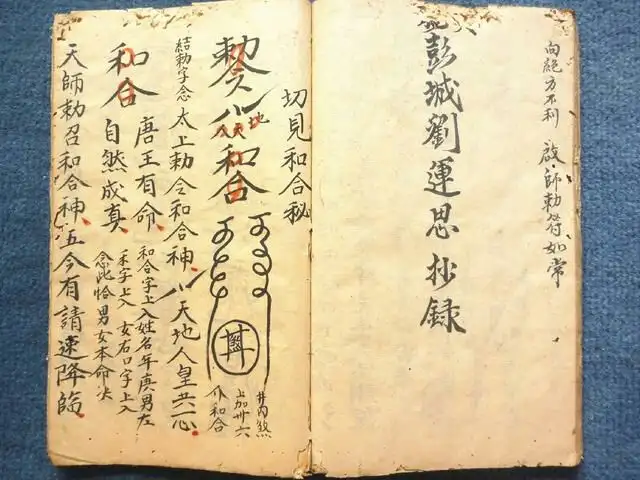 向絕方不利 啟師勅符如常
彭城劉運思抄録
切見和合秘
勅令 和合
地
天
井內煞
上加卅六
个和合
結勅字念 太上勅令和合神 天地人皇共一心
和合
唐王有命 和合字上入姓名年庚男左
禾字上入女右口字上入
自然成真 念此恰男女本命决
天師勅召和合神 五今有請速降臨